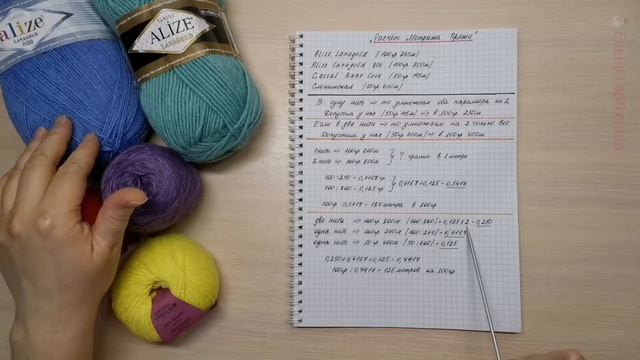 alize
LANAGOLD
800
CLASSIC
ALIZE
LANAGOLD
"Расчёт Метража Пряжи"
Alize Lanagold /100гр 240м/
Alize Lanagold 800 /100гр 800м/
Baby Love /50гр 115м/
/50гр 400м/
В одну нить => то умножаем оба параметра на 2
Допустим у нас /50гр 115м/ => в 100гр 230м
Если в две нити => то умножаем на 2 только вес
Допустим у нас /50гр 400м/ => в 100гр 400м
1 нить => 100гр 240м
2 нить => 100гр 800м } ? грамм в 1 метре
100:240 = 0,4167гр
100:800 = 0,125гр } 0,4167+0,125 = 0,5417
100гр : 0,5417 = 184 метра в 100гр
две нити => 100гр 800м /100:800/ = 0,125×2 = 0,250
одна нить => 100гр 240м /100:240/ = 0,4167
одна нить => 50гр 400м /50:400/ = 0,125
0,250+0,4167+0,125 = 0,7917
100гр : 0,7917 = 126 метров на 100гр